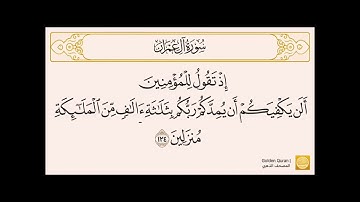 سُورَةُ آلِ عِمْرَانَ
إِذْ تَقُولُ لِلْمُؤْمِنِينَ
أَلَن يَكْفِيَكُمْ أَن يُمِدَّكُمْ رَبُّكُم بِثَلَٰثَةِ ءَالَٰفٍ مِّنَ ٱلْمَلَٰٓئِكَةِ
مُنزَلِينَ ١٢٤
Golden Quran |
المصحف الذهبي